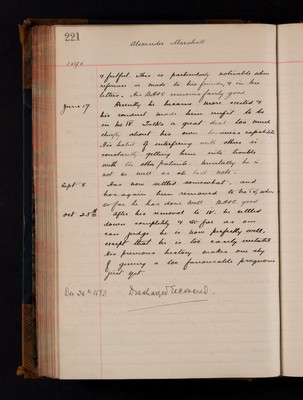 221
Alexander Marshall
1890
& fretful. This is particularly noticeable when
reference is made to his friends, & in his
letters. His bodily remains fairly good
June 17. Recently he became more excited &
his conduct made him unfit to be
in No IV. Talks a great deal too much
chiefly about his own business capabilities
His habit of interfering with others is
constantly getting him into trouble
with the other patients. Mentally he is
not so well as at last note.
Sept 8 Has now settled somewhat and
has again been removed to No IV, when
so far he has done well. good
Oct 25th After his removal to IV. he settled
down completely & so far as one
can judge he is now perfectly well,
except that he is too easily irritated
His previous history makes one shy
of giving a too favourable prognosis
just yet.
Dec 30th 1890 Discharged Recovered.